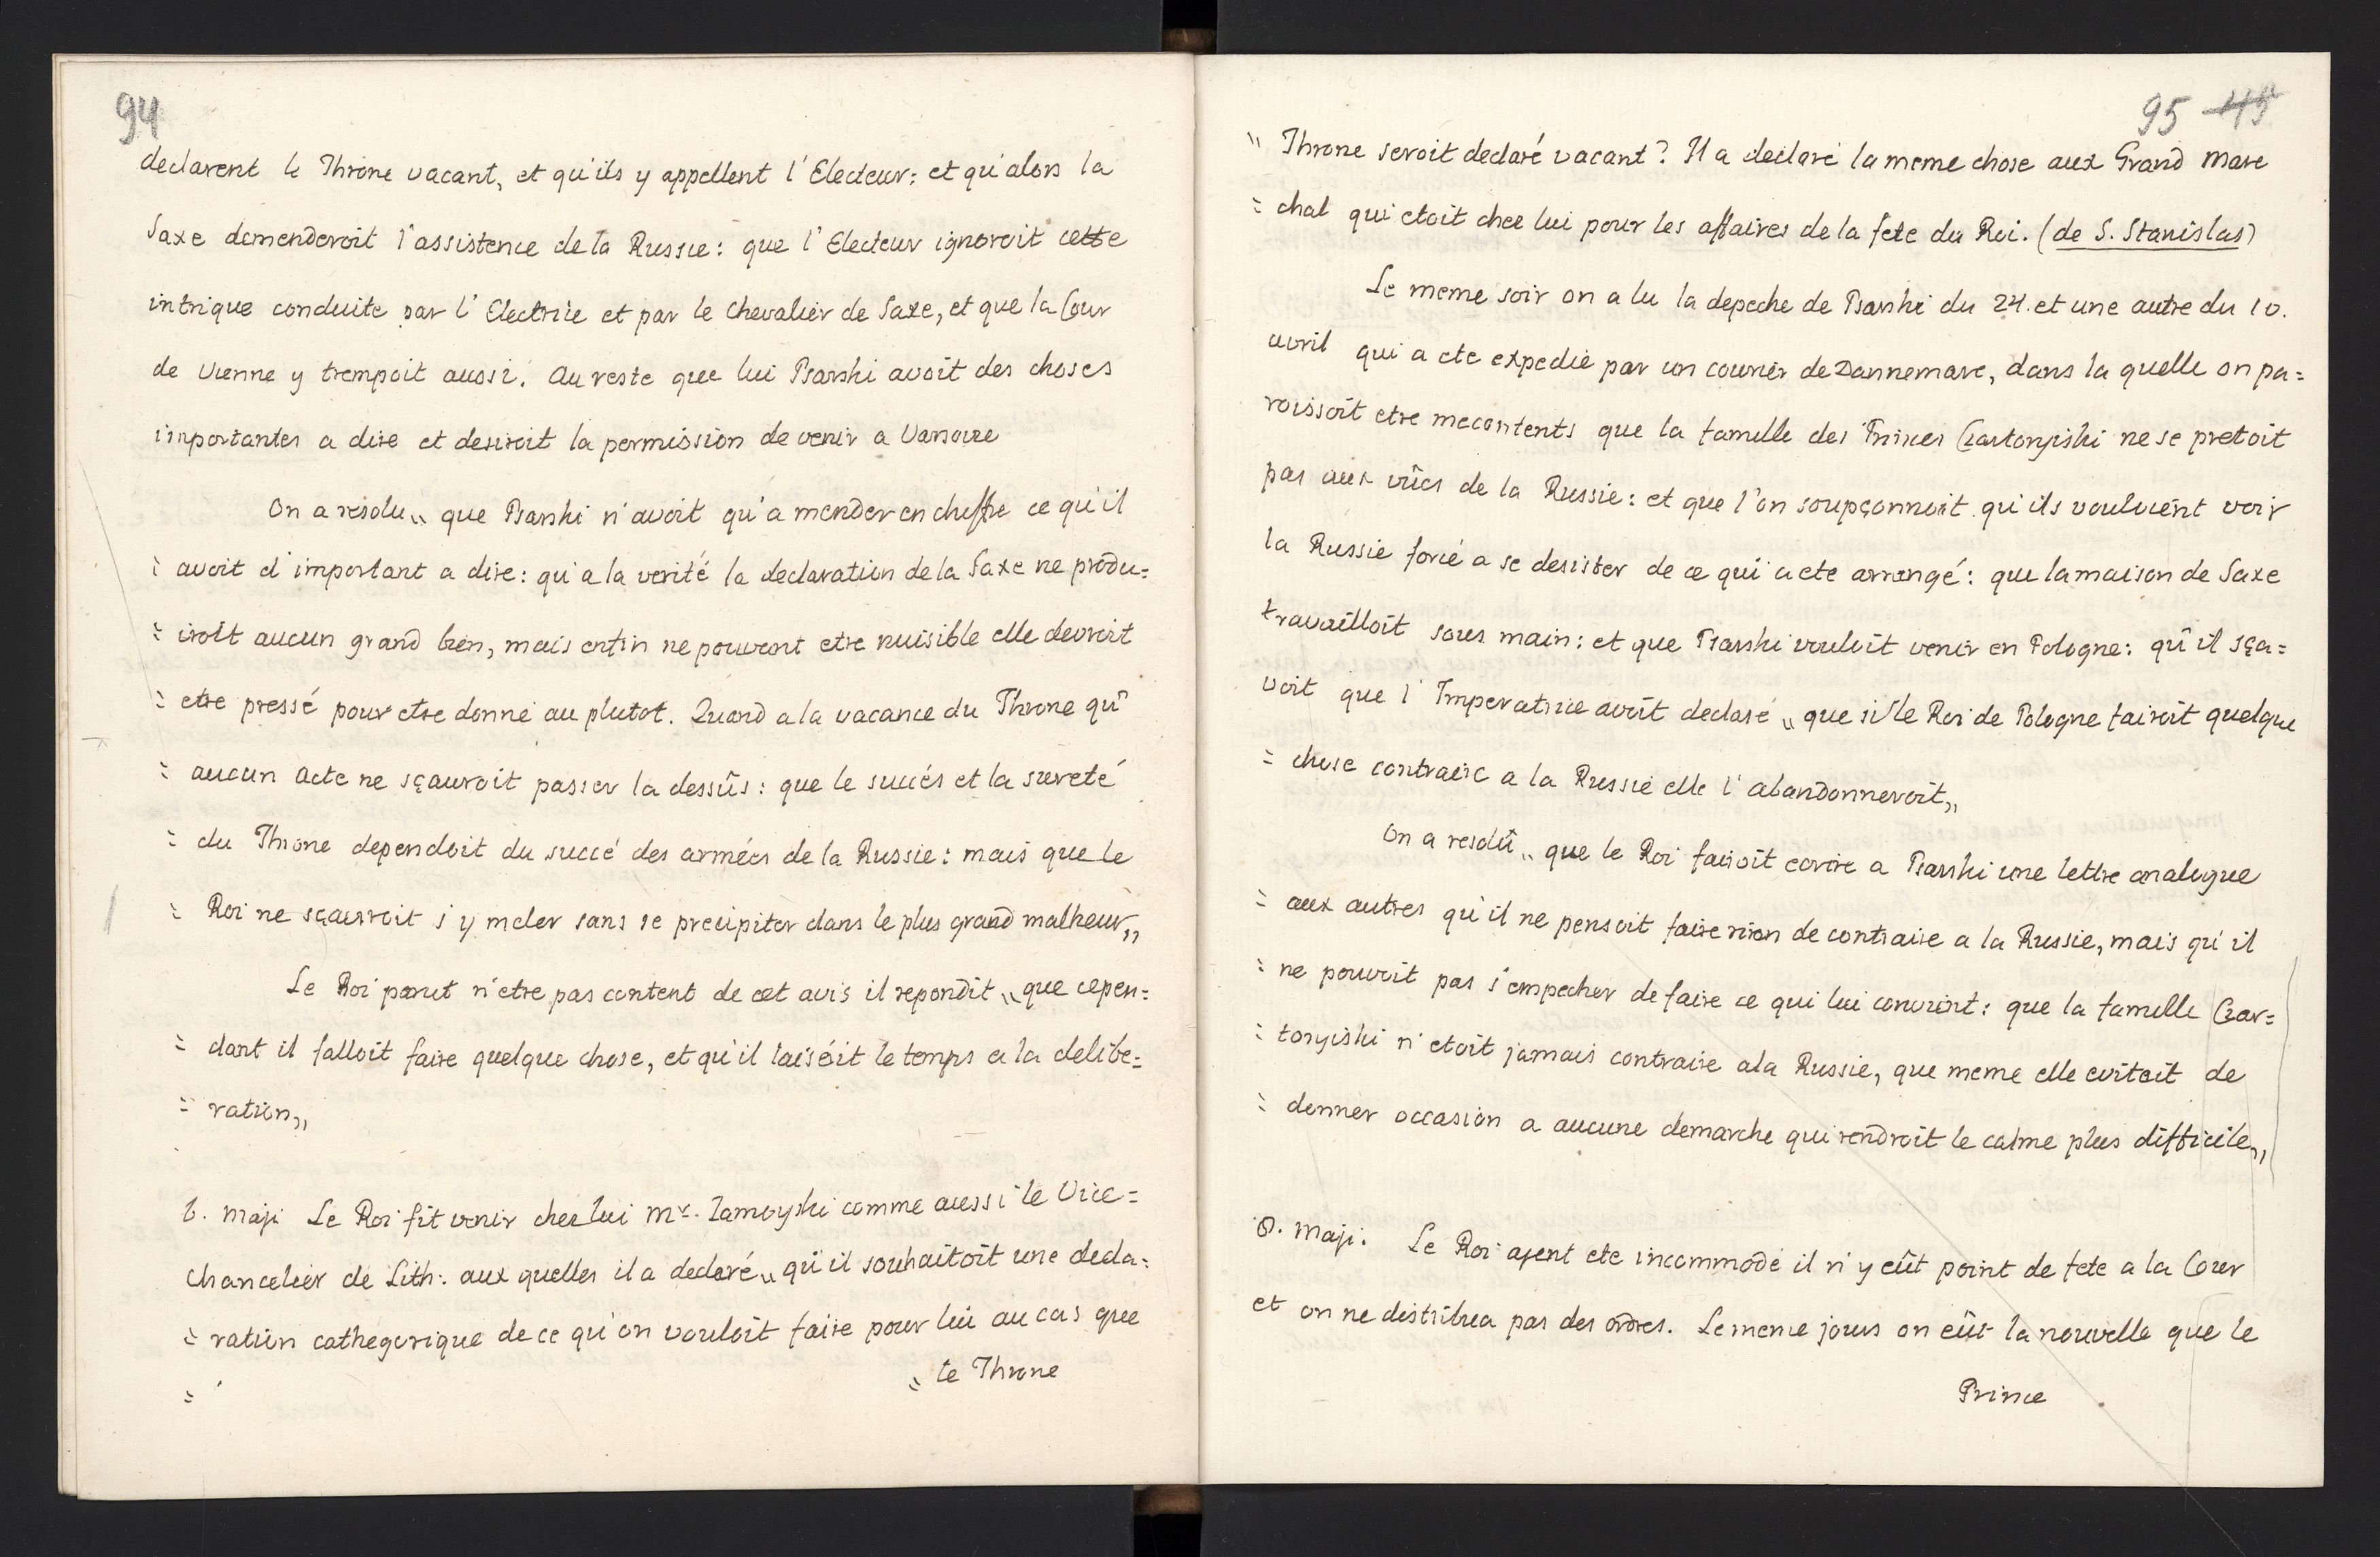 94
declarent le Throne vacant, et qu'ils y appellent l'Electeur: et qu'alors la
Saxe demenderoit l'assistence de la Russie: que l'Electeur ignoroit cette
intrique conduite par l'Electrice et par le Chevalier de Saxe, et que la Cour
de Vienne y trempoit aussi. Au reste que lui Psarski avoit des choses
importantes a dire et desiroit la permission de venir a Varsovie
On a resolu „ que Psarski n'avoit qu'a mender en cheffre ce qu'il
= avoit d'important a dire: qu'a la verité la declaration de la Saxe ne produ=
= iroit aucun grand bien, mais enfin ne pouvant etre nuisible elle devroit
= etre pressé pour etre donné au plutot. Quand a la vacance du Throne qu'
= aucun acte ne sçauroit passer la dessûs: que le succés et la sureté
= du Throne dependoit du succé des armées de la Russie: mais que le
= Roi ne sçauroit s'y meler sans se precipiter dans le plus grand malheur„
Le Roi parut n'etre pas content de cet avis il repondit „ que cepen=
= dant il falloit faire quelque chose, et qu'il laiseoit le temps a la delibe=
= ration„
6. Maji Le Roi fit venir chez lui Mr. Zamoyski comme aussi le Vice=
Chancelier de Lith: aux quelles il a declaré „ qu'il souhaitoit une decla=
= ration cathegorique de ce qu'on vouloit faire pour lui au cas que
= „ le Throne
95 45
„ Throne seroit declaré vacant? Il a declaré la meme chose aux Grand Mare
= chal qui etoit chez lui pour les affaires de la fete du Roi. (de S. Stanislas)
Le meme soir on a lu la depeche de Psarski du 24. et une autre du 10.
avril qui a ete expedie par un courier de Dannemarc, dans la quelle on pa=
roissoit etre mecontents que la familie des Princes Czartoryiski ne se pretoit
pas aux vûes de la Russie: et que l'on soupçonnoit qu'ils vouloient voir
la Russie forcé a se desister de ce qui a ete arrangé: que la maison de Saxe
travailloit sous main: et que Psarski vouloit venir en Pologne: qu'il sça=
voit que l'Imperatrice avoit declaré „ que si le Roi de Pologne fairoit quelque
= chose contraire a la Russie elle l'abandonneroit„
On a resolû „ que le Roi faisoit ecrire a Psarski une lettre analogue
= aux autres qu'il ne pensoit faire rien de contraire a la Russie, mais qu'il
= ne pouvoit pas s'empecher de faire ce qui lui convient: que la familie Czar=
= toryiski n'etoit jamais contraire a la Russie, que meme elle evitoit de
= donner occasion a aucune demarche qui rendroit le calme plus difficile„
8. Maji. Le Roi ajent ete incommodé il n'y eût point de fete a la Cour
et on ne distribua pas des ordres. Le meme jours on eût la nouvelle que le
Prince